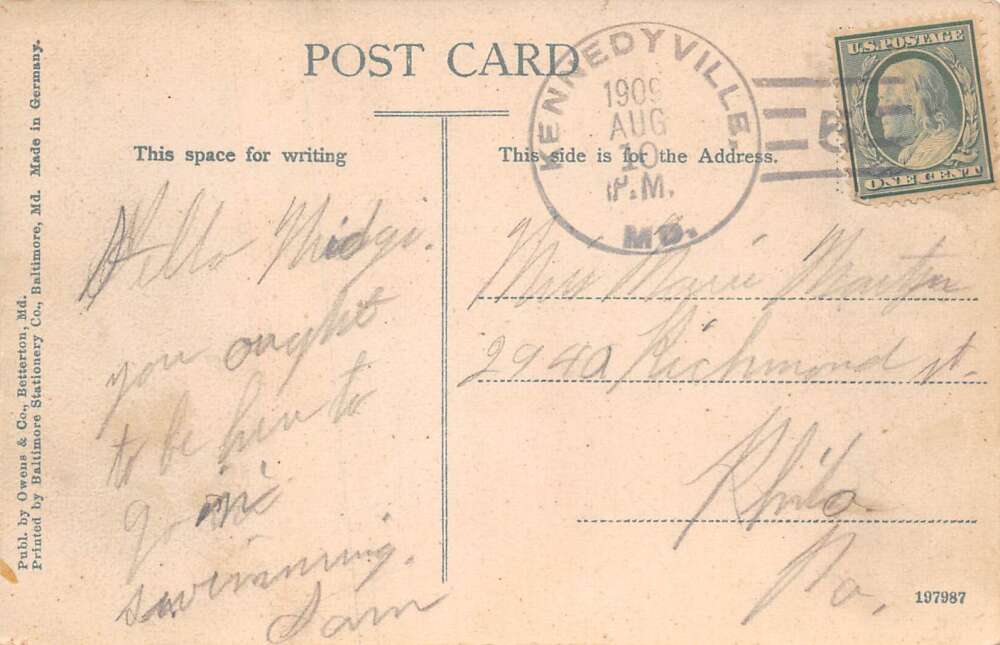 POST CARD
This space for writing
This side is for the Address.
KENNEDYVILLE.
1909
AUG
10
P.M.
MD.
U.S. POSTAGE
ONE CENT
Hello Midge.
you ought
to be here to
go in
swimming.
Sam
Miss Marie Martin
2940 Richmond st.
Phila.
Pa.
197987
Publ. by Owens & Co., Betterton, Md.
Printed by Baltimore Stationery Co., Baltimore, Md. Made in Germany.